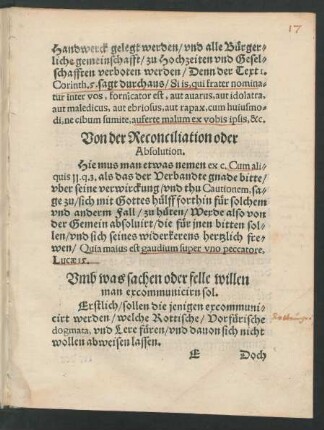 17
Handwerck gelegt werden/ vnd alle Bürger-
liche gemeinschafft/ zu Hochzeiten vnd Gesel-
schafften verboten werden/ Denn der Text 1.
Corinth. 5. sagt durchaus/ Si is, qui frater nomina-
tur inter vos, fornicator est, aut auarus, aut idolatra.
aut maledicus, aut ebriosus, aut rapax. cum huiusmo-
di, ne cibum sumite, auferte malum ex vobis ipsis, &c.
Von der Reconciliation oder
Absolution.
Hie mus man etwas nemen ex c. Cum ali-
quis 11. q. 3. als das der Verbandte gnade bitte/
vber seine verwirckung/ vnd thu Cautionem, sa-
ge zu/ sich mit Gottes hülff forthin für solchem
vnd anderm Fall/ zu hüten/ Werde also von
der Gemein absoluirt/ die für jnen bitten sol-
len/ vnd sich seines widerkerens hertzlich fre-
wen/ Quia maius est gaudium super vno peccatore.
Lucæ 15.
Vmb was sachen oder felle willen
man excommunicirn sol.
Erstlich/ sollen die jenigen excommuni-
cirt werden/ welche Rottische/ Vorfürische
dogmata, vnd Lere füren/ vnd dauon sich nicht
wollen abweisen lassen.
E Doch